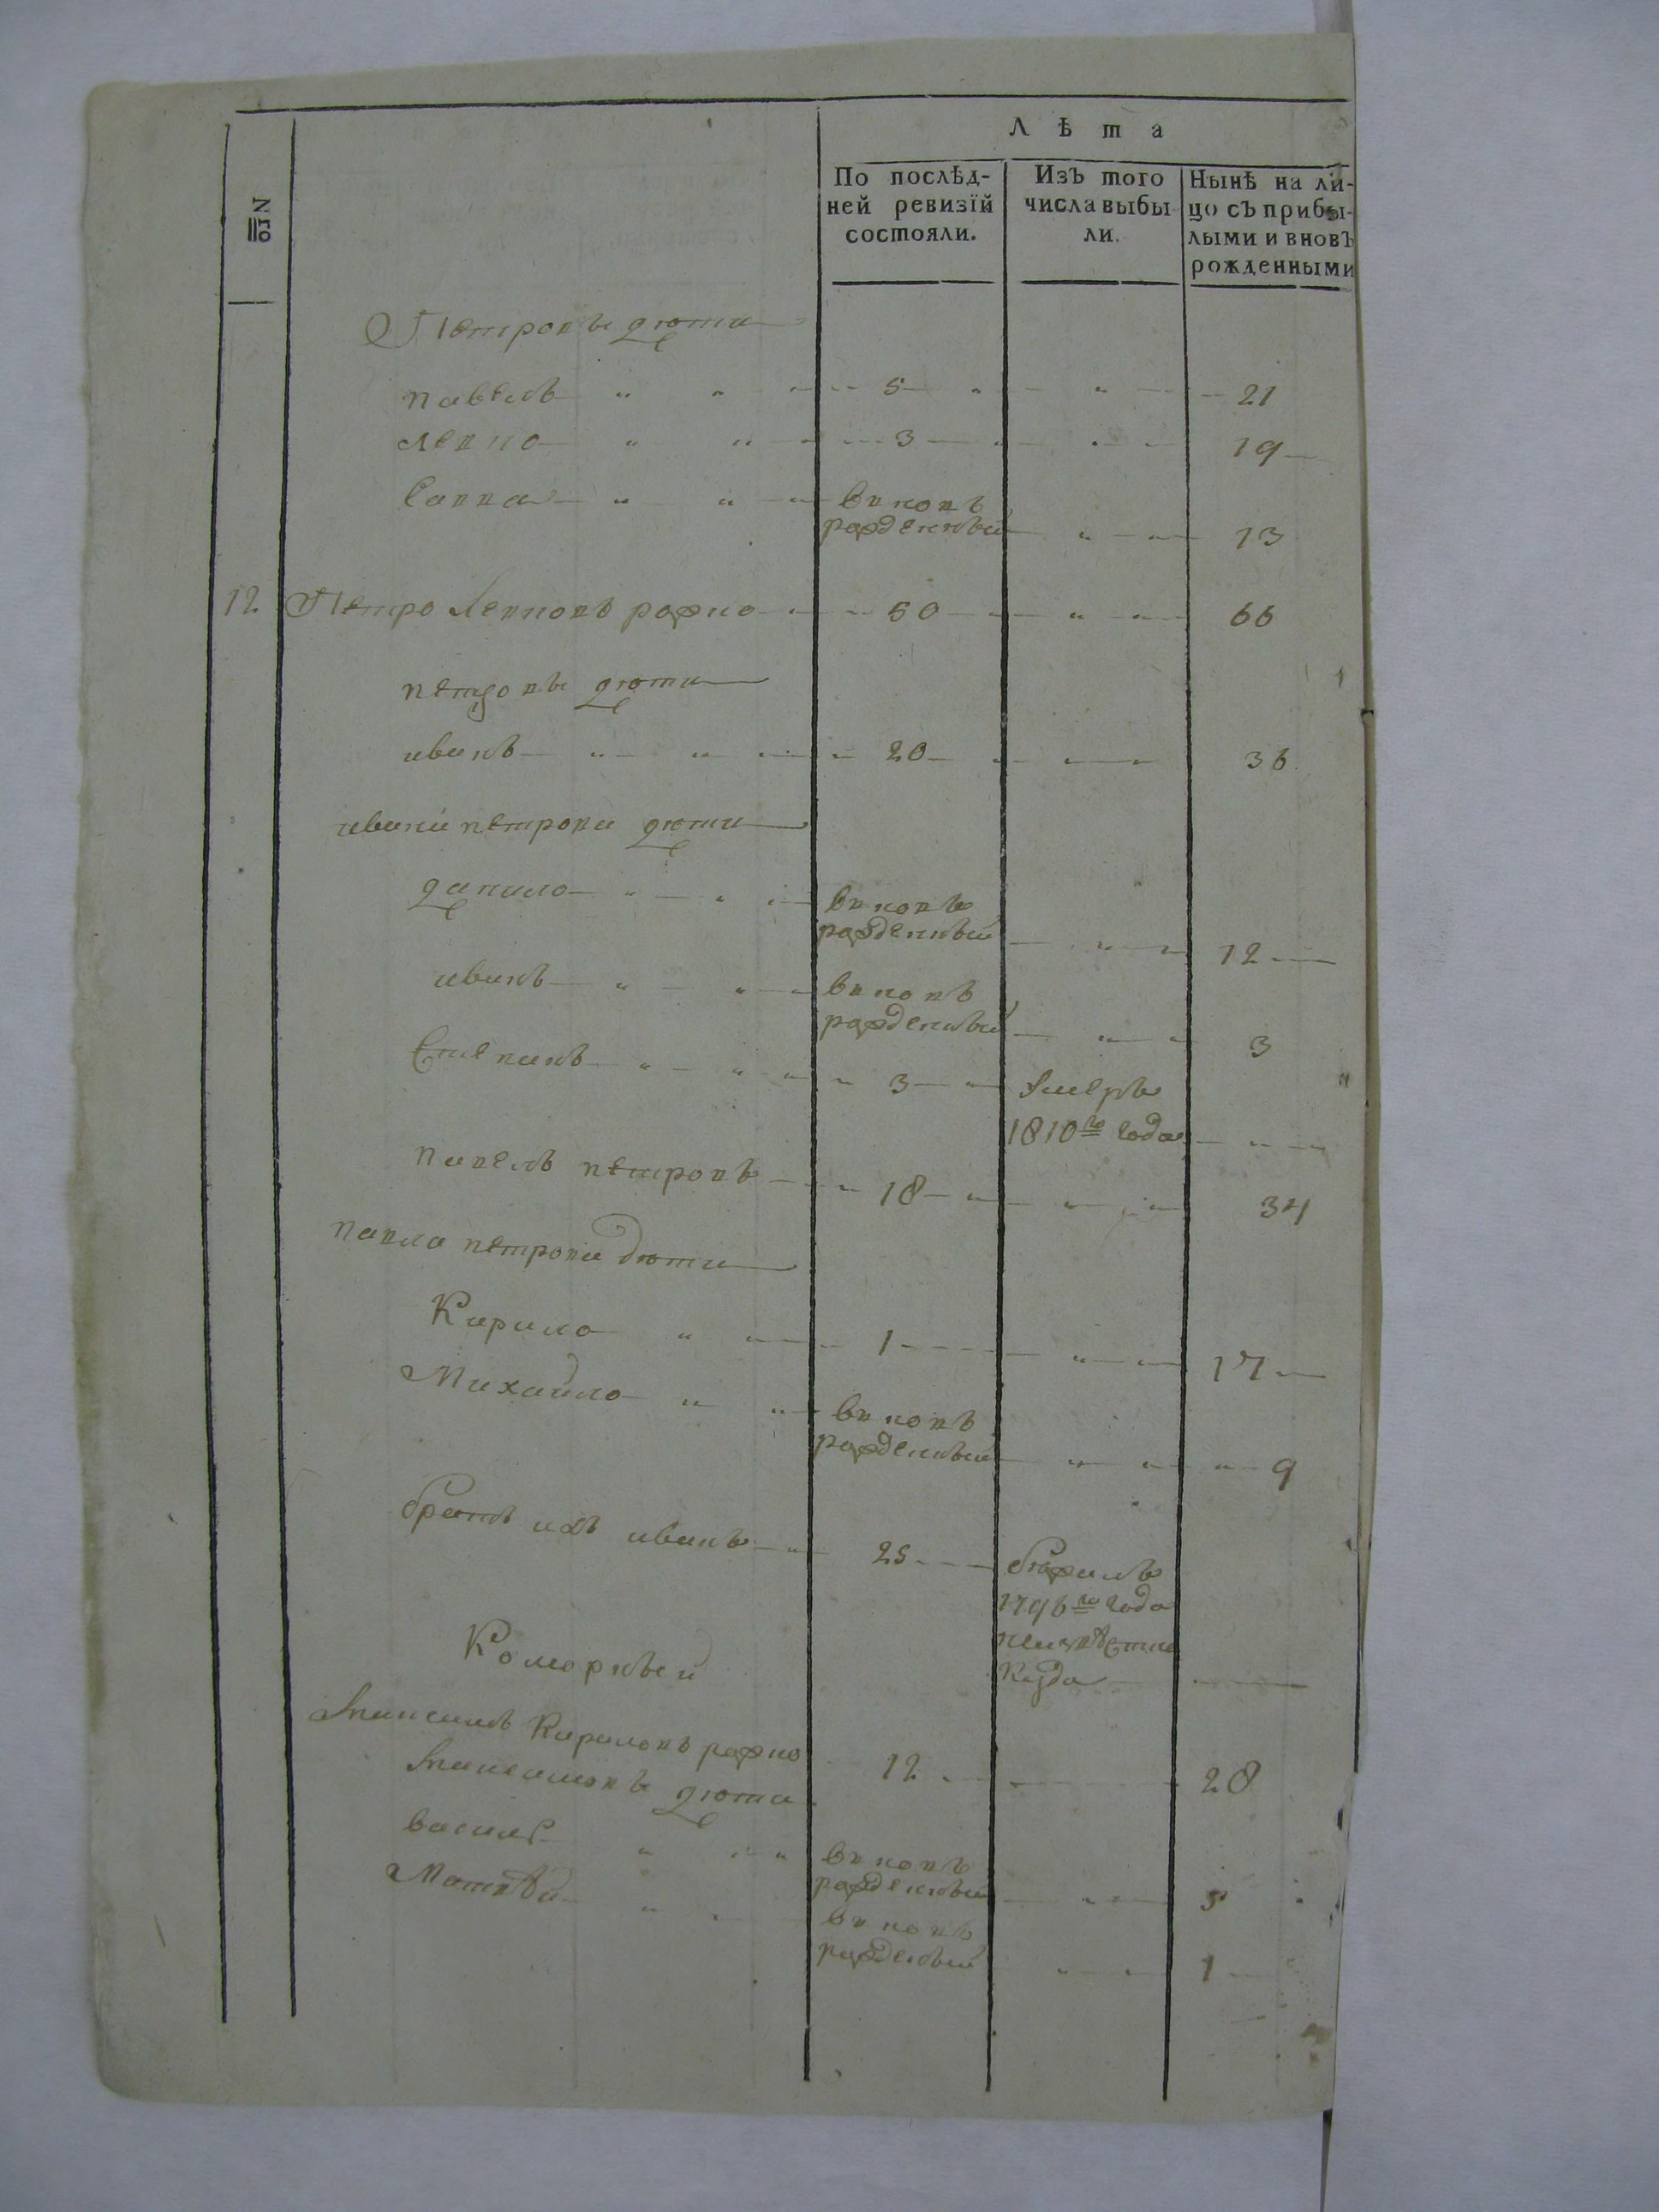 №
Лѣта
По послѣд-
ней ревизїй
состояли.
Изъ того
числа выбы
ли.
Нынѣ на ли-
цо съ прибы-
лыми и вновь
рожденными
Петровы дѣти
павелъ 5 21
левко 3 19
Савва вновь
рожденный 13
12. Петро Левковъ рожко 50 66
петровы дѣти
иванъ 20 36
ивана петрова дѣти
данило вновь
рожденный 12
иванъ вновь
рожденный 3
Степанъ 3 умеръ
1810го года
павелъ петровъ 18 34
павла петрова дѣти
Кирило 1 17
Михайло вновь
рожденный 9
братъ ихъ иванъ 25 бѣжалъ
1796го года
неизвѣстно
куда
Коморный
Кириловъ рожко 12 28
дѣти
василь вновь
рожденный 5
Матвѣй вновь
рожденый 1